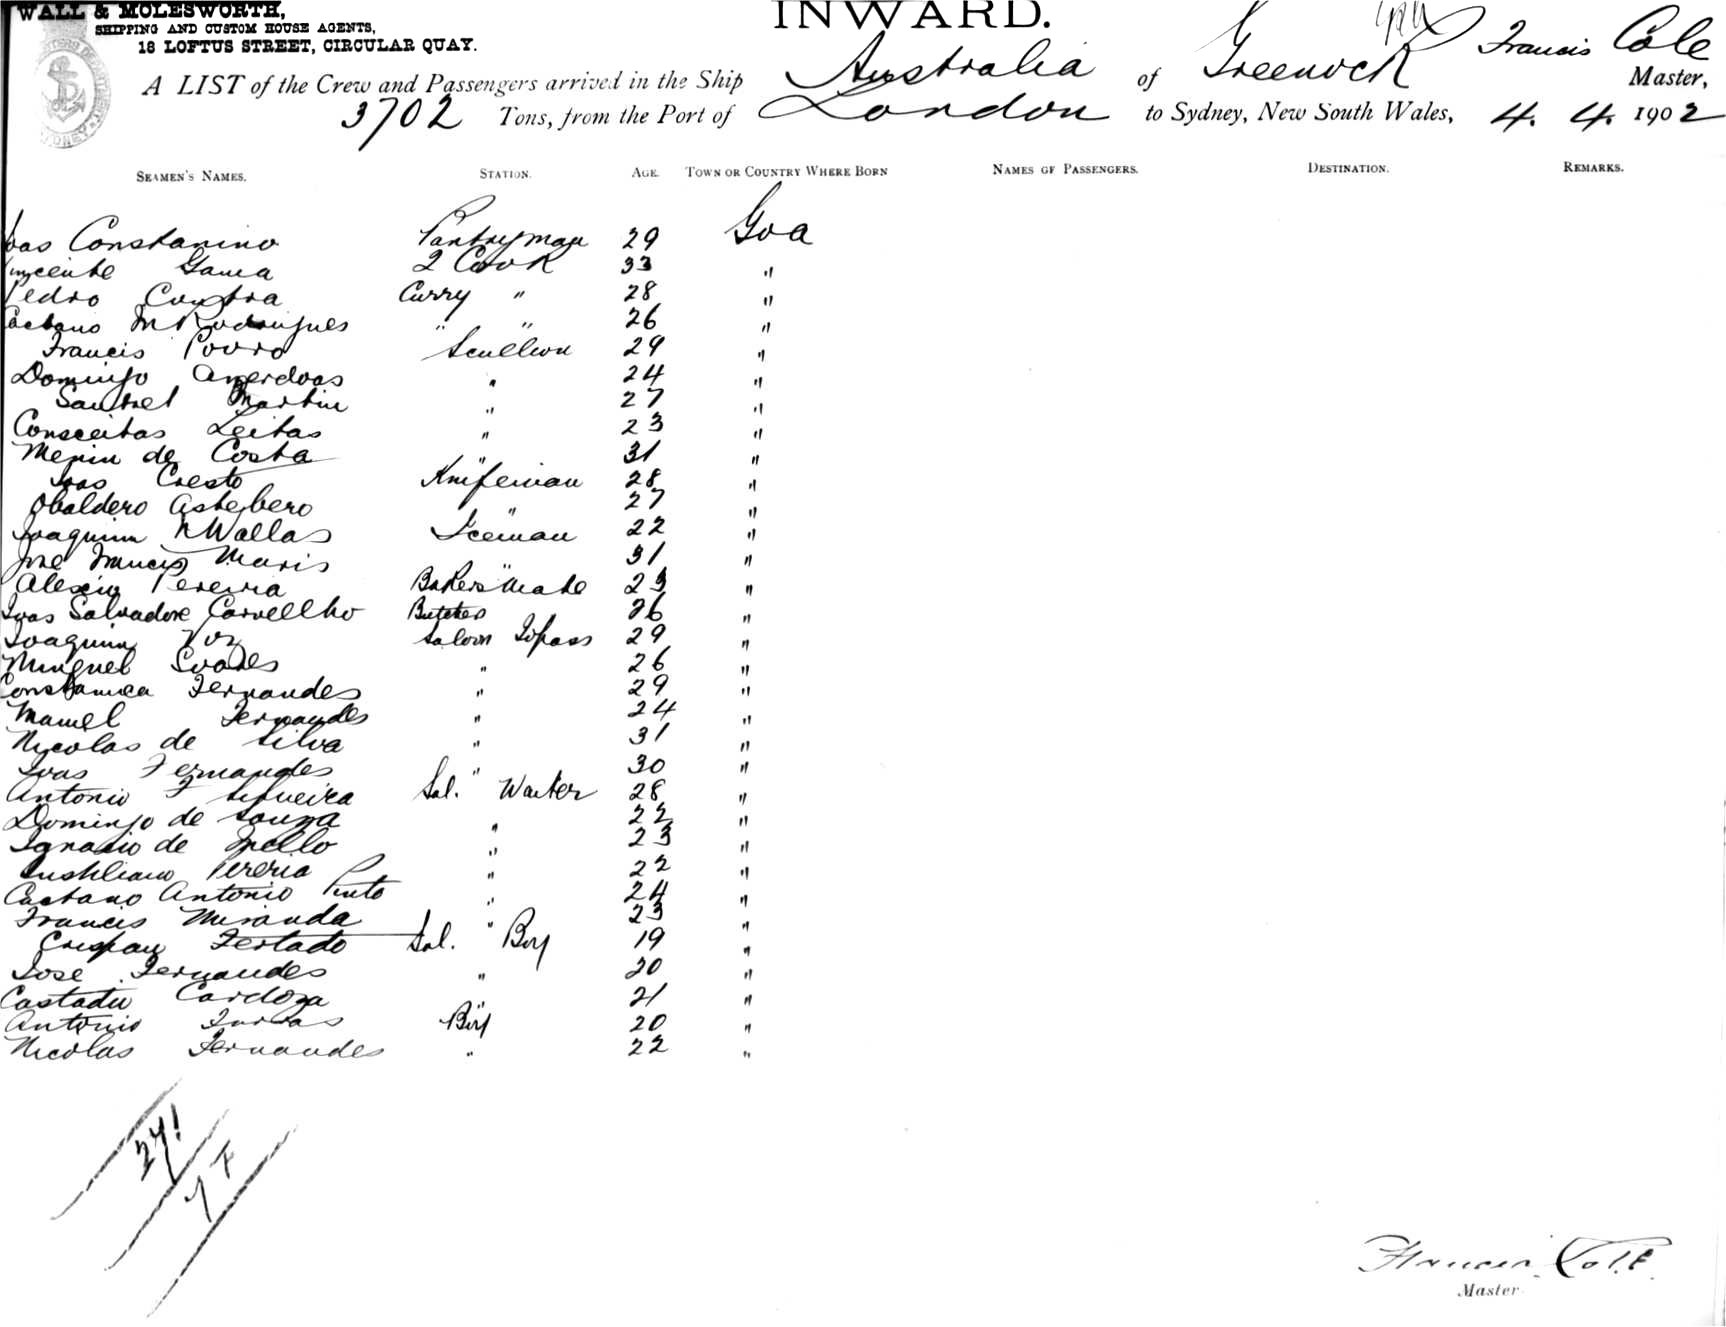 WALL & MOLESWORTH,
SHIPPING AND CUSTOM HOUSE AGENTS,
18 LOFTUS STREET, CIRCULAR QUAY.
INWARD.
A LIST of the Crew and Passengers arrived in the Ship Australia of Greenock Francis Cole Master,
3702 Tons, from the Port of London to Sydney, New South Wales, 4. 4. 1902
SEAMEN'S NAMES. STATION. AGE. TOWN OR COUNTRY WHERE BORN NAMES OF PASSENGERS. DESTINATION. REMARKS.
Joas Constanino Pantryman 29 Goa
Vincente Gama 2 Cook 33 "
Pedro Contra Curry " 28 "
Caetano M Rodrigues " " 26 "
Francis Povro Scullion 29 "
Domingo " 24 "
Martin " 27 "
Consceitas Leitas " 23 "
Menin de Costa " 31 "
Joas Cresto Knifeman 28 "
Obaldero " 27 "
Joaquim Wallas Iceman 22 "
Jose Francis Maris " 31 "
Alexin Pereira Bakers Mate 23 "
Joas Salvadore Carvellho Butcher 26 "
Joaquim Voz Saloon Topass 29 "
Minguel Soares " 26 "
Fernandes " 29 "
Manuel Fernandes " 24 "
Nicolas de Silva " 31 "
Joas Fernandes " 30 "
Antonio F Sequeira Sal. Waiter 28 "
Domingo de Souza " 22 "
Ignasio de Mello " 23 "
Pereria " 22 "
Caetano Antonio Pinto " 24 "
Francis Miranda " 23 "
Crispan Fertado Sal. Boy 19 "
Jose Fernandes " 20 "
Cardoza " 21 "
Antonio Boy 20 "
Nicolas Fernandes " 22 "
Francis Cole
Master